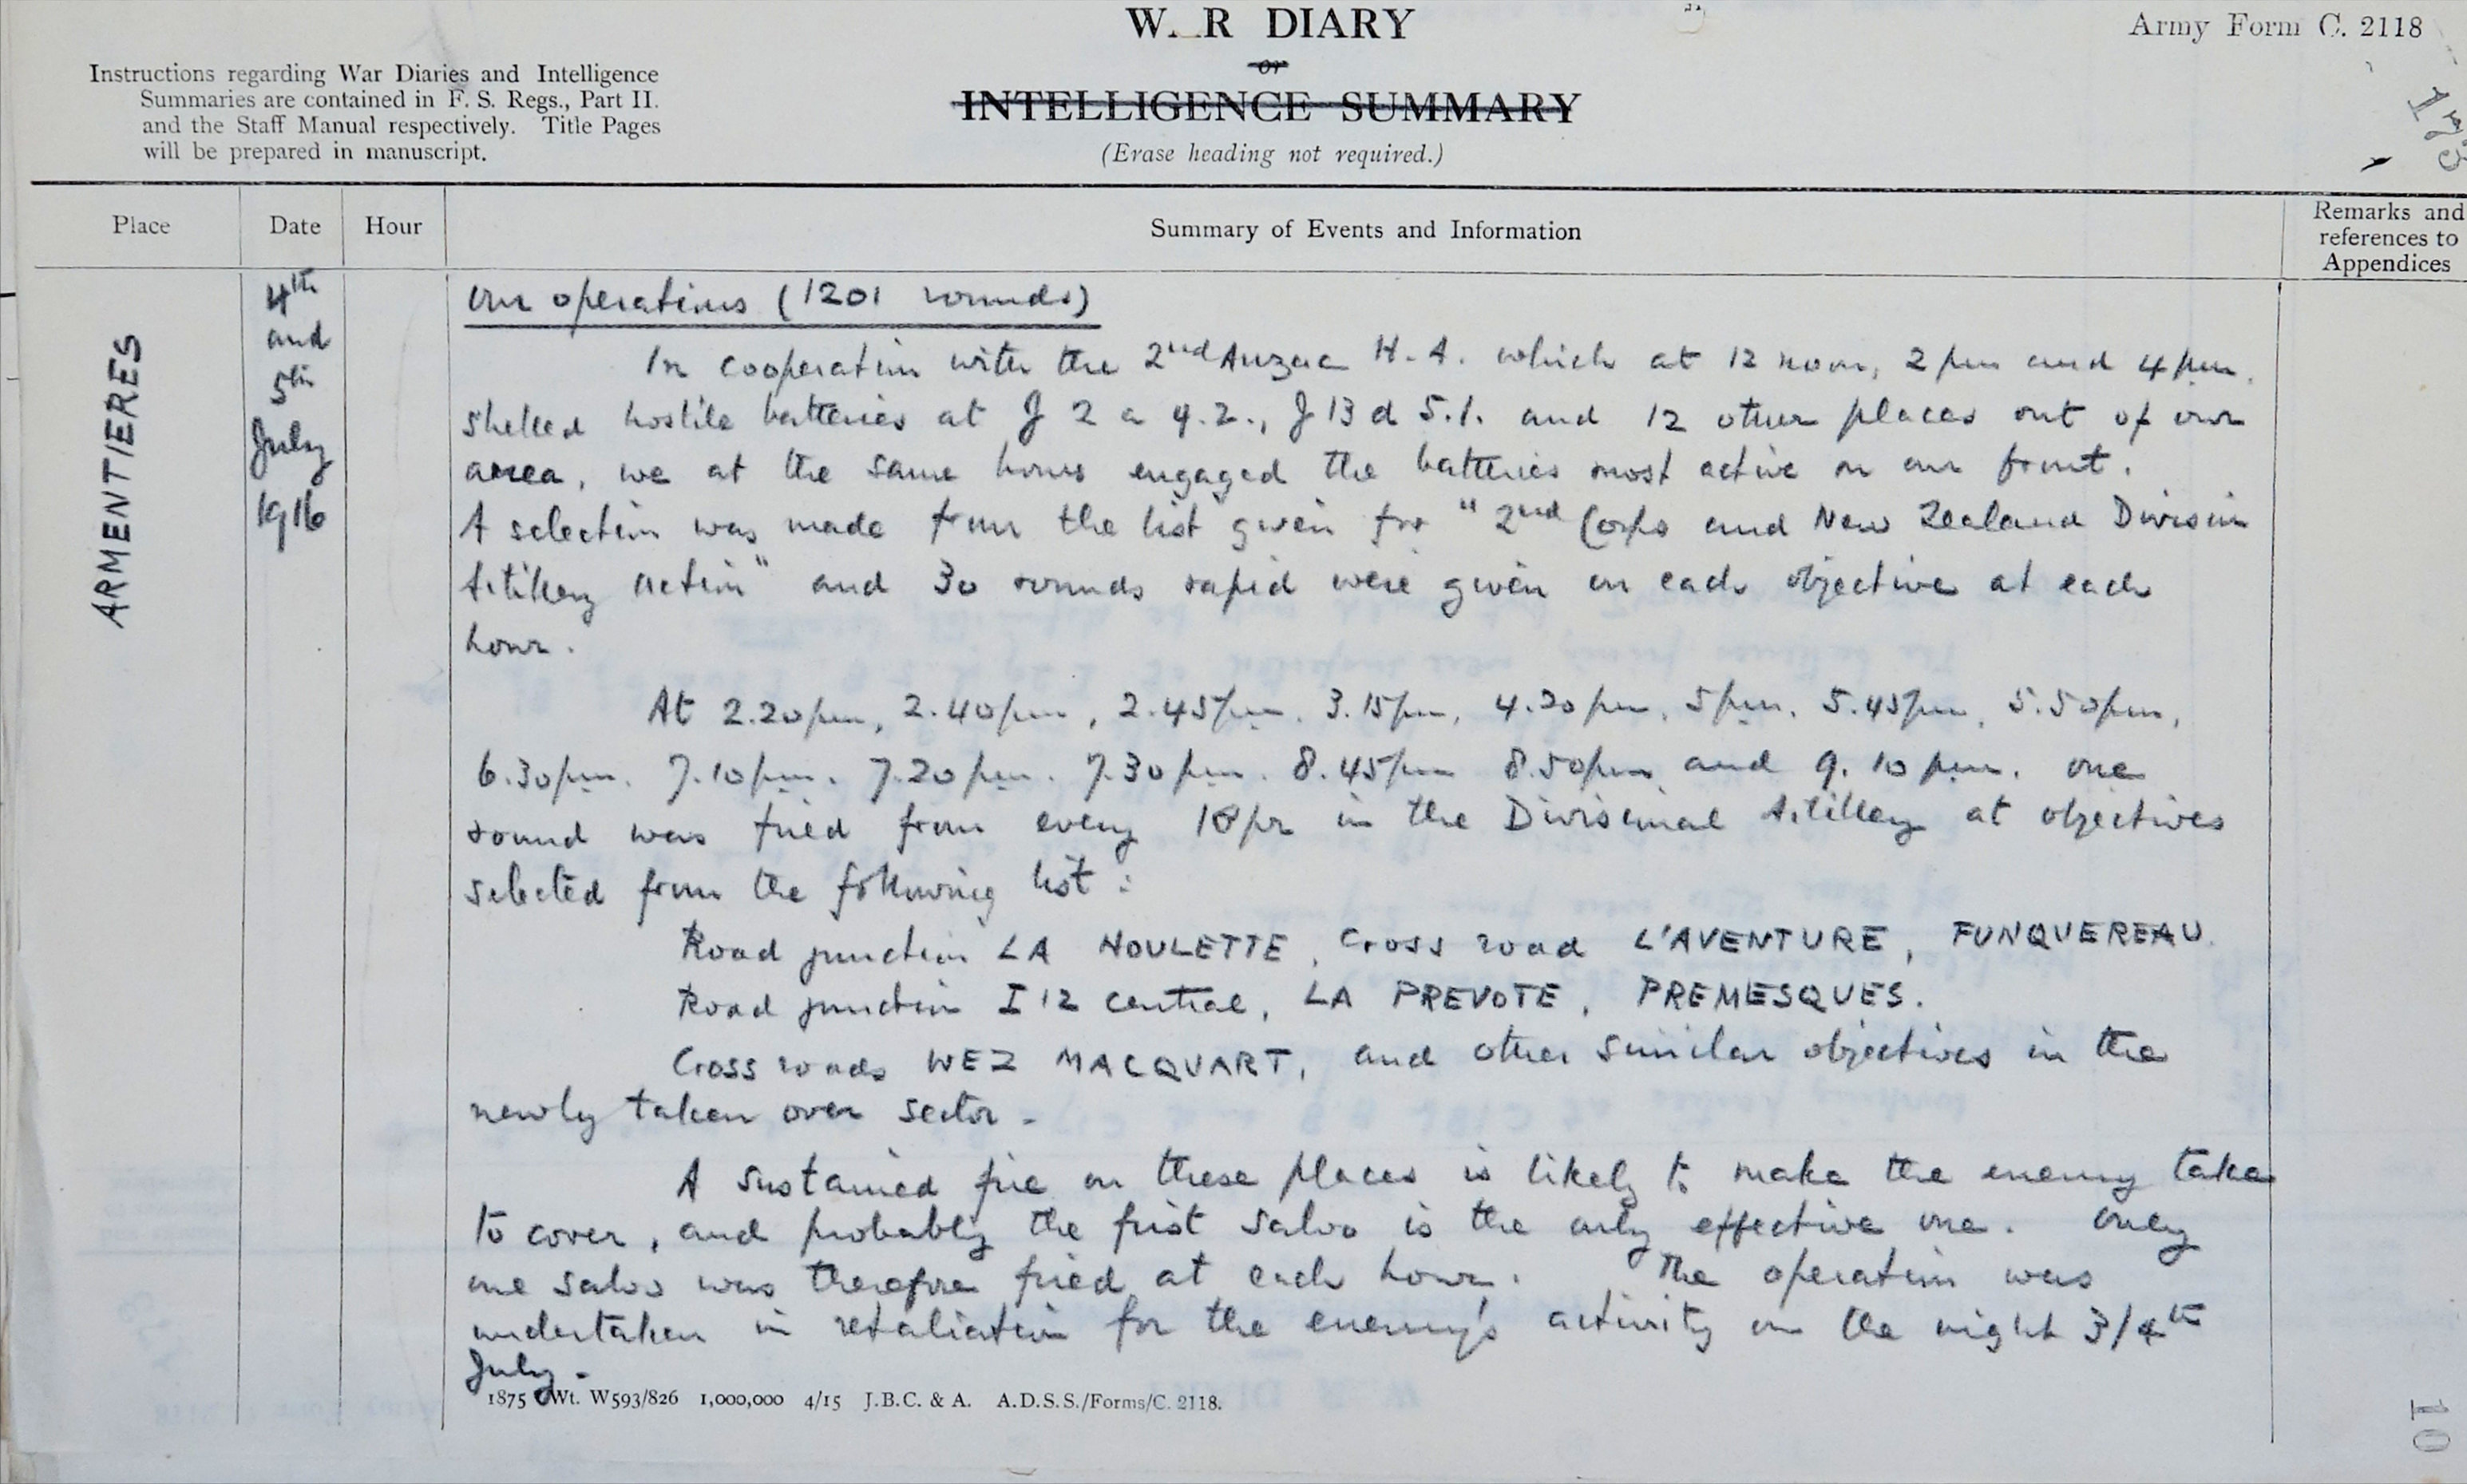 W. R DIARY
or
INTELLIGENCE SUMMARY
(Erase heading not required.)
Army Form C. 2118
173
Instructions regarding War Diaries and Intelligence
Summaries are contained in F. S. Regs., Part II.
and the Staff Manual respectively. Title Pages
will be prepared in manuscript.
Place
Date
Hour
Summary of Events and Information
Remarks and
references to
Appendices
ARMENTIERES
4th
and
5th
July
1916
Our operations (1201 rounds)
In cooperation with the 2nd Anzac H.A. which at 12 noon, 2 pm and 4 pm.
shelled hostile batteries at J 2 a 9.2., J 13 d 5.1. and 12 other places out of our
area, we at the same hours engaged the batteries most active on our front.
A selection was made from the list given for "2nd Corps and New Zealand Division
Artillery action" and 30 rounds rapid were given on each objective at each
hour.
At 2.20pm, 2.40pm, 2.45pm. 3.15pm, 4.20pm, 5pm. 5.45pm, 5.50pm,
6.30pm. 7.10pm. 7.20pm. 7.30pm. 8.45pm 8.50pm and 9.10 pm. one
round was fired from every 18pr in the Divisional Artillery at objectives
selected from the following list :
Road junction LA HOULETTE, Cross road L'AVENTURE, FUNQUEREAU.
Road junction I 12 central, LA PREVOTE, PREMESQUES.
Cross roads WEZ MACQUART, and other similar objectives in the
newly taken over sector.
A sustained fire on these places is likely to make the enemy take
to cover, and probably the first salvo is the only effective one. Only
one salvo was therefore fired at each hour. The operation was
undertaken in retaliation for the enemy's activity on the night 3/4th
July.
1875 Wt. W593/826 1,000,000 4/15 J.B.C. & A. A.D.S.S./Forms/C. 2118.
10